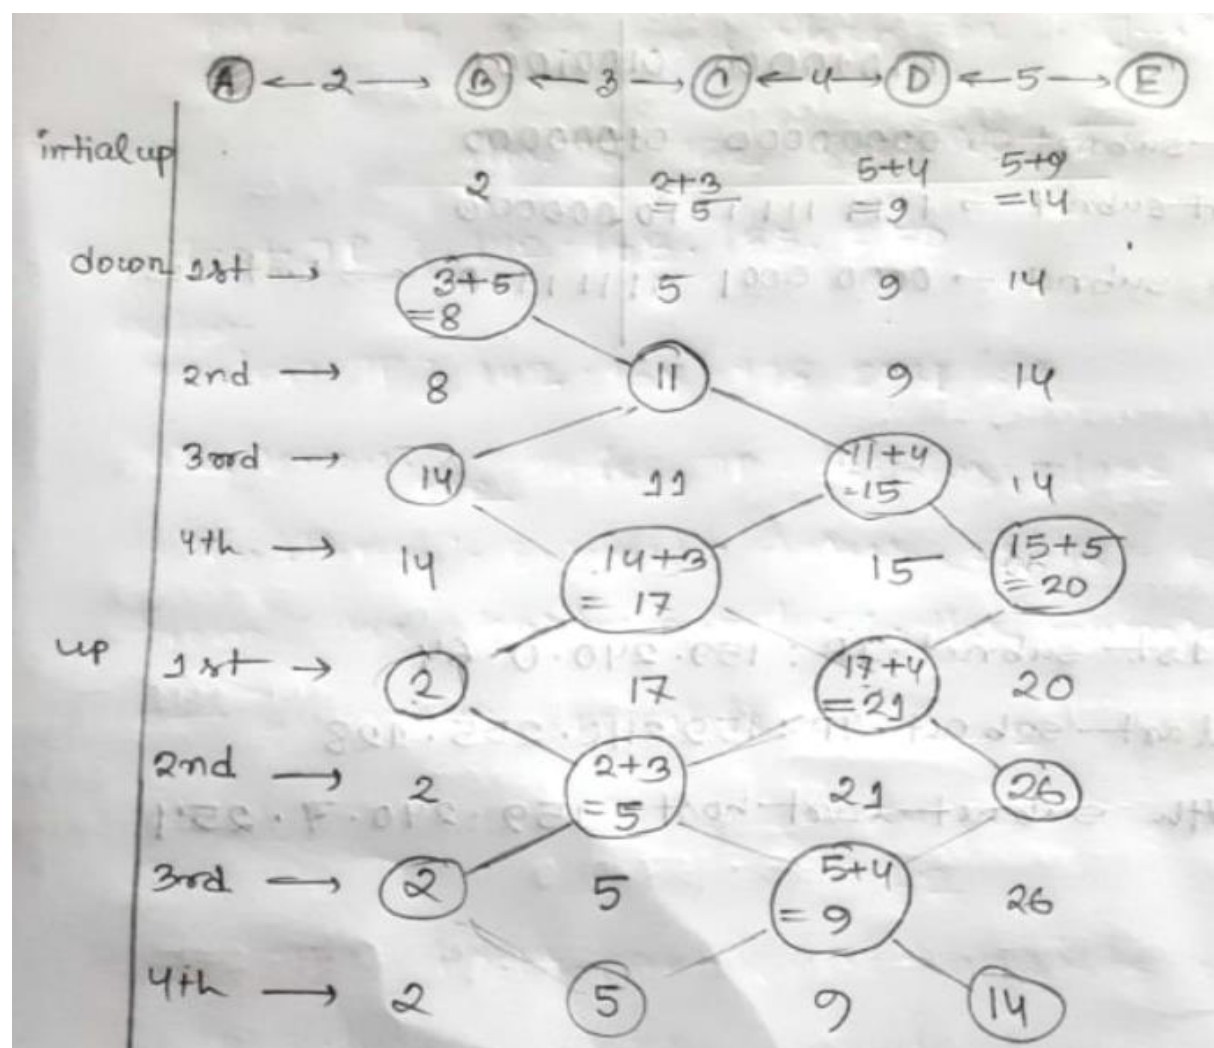 A ← 2 → B ← 3 → C ← 4 → D ← 5 → E
intial up
2 2+3 = 5 5+4 = 9 5+9 = 14
down 1st → 3+5 = 8 5 9 14
2nd → 8 11 9 14
3rd → 14 11 11+4 = 15 14
4th → 14 14+3 = 17 15 15+5 = 20
up 1st → 2 17 17+4 = 21 20
2nd → 2 2+3 = 5 21 26
3rd → 2 5 5+4 = 9 26
4th → 2 5 9 14